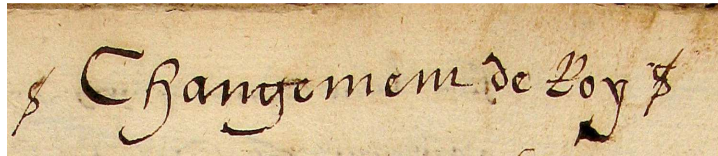 Changement de Roy